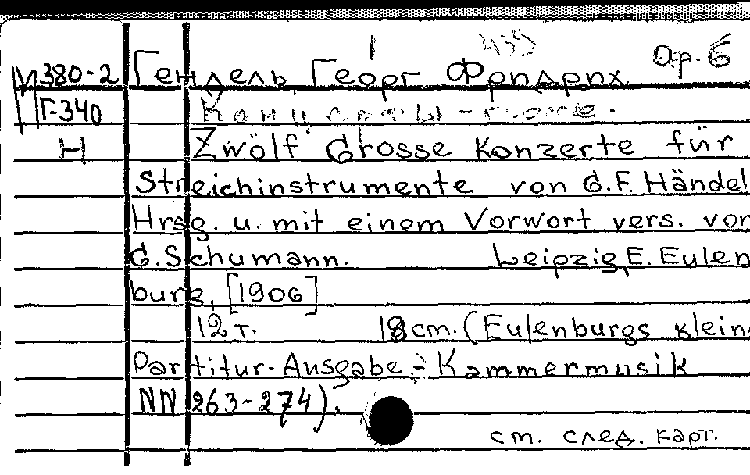 Ор. 6
М380-2 Гендель, Георг Фридрих
Г-340 Концерты-гроссо.
Н Zwölf Grosse Konzerte für
Streichinstrumente von G.F. Händel
Hrsg. u. mit einem Vorwort vers. von
G. Schumann. Leipzig, E. Eulen
burg, [1906]
12 т. 18 cm. (Eulenburgs kleine
Partitur-Ausgabe - Kammermusik
NN 263-274).
см. след. карт.